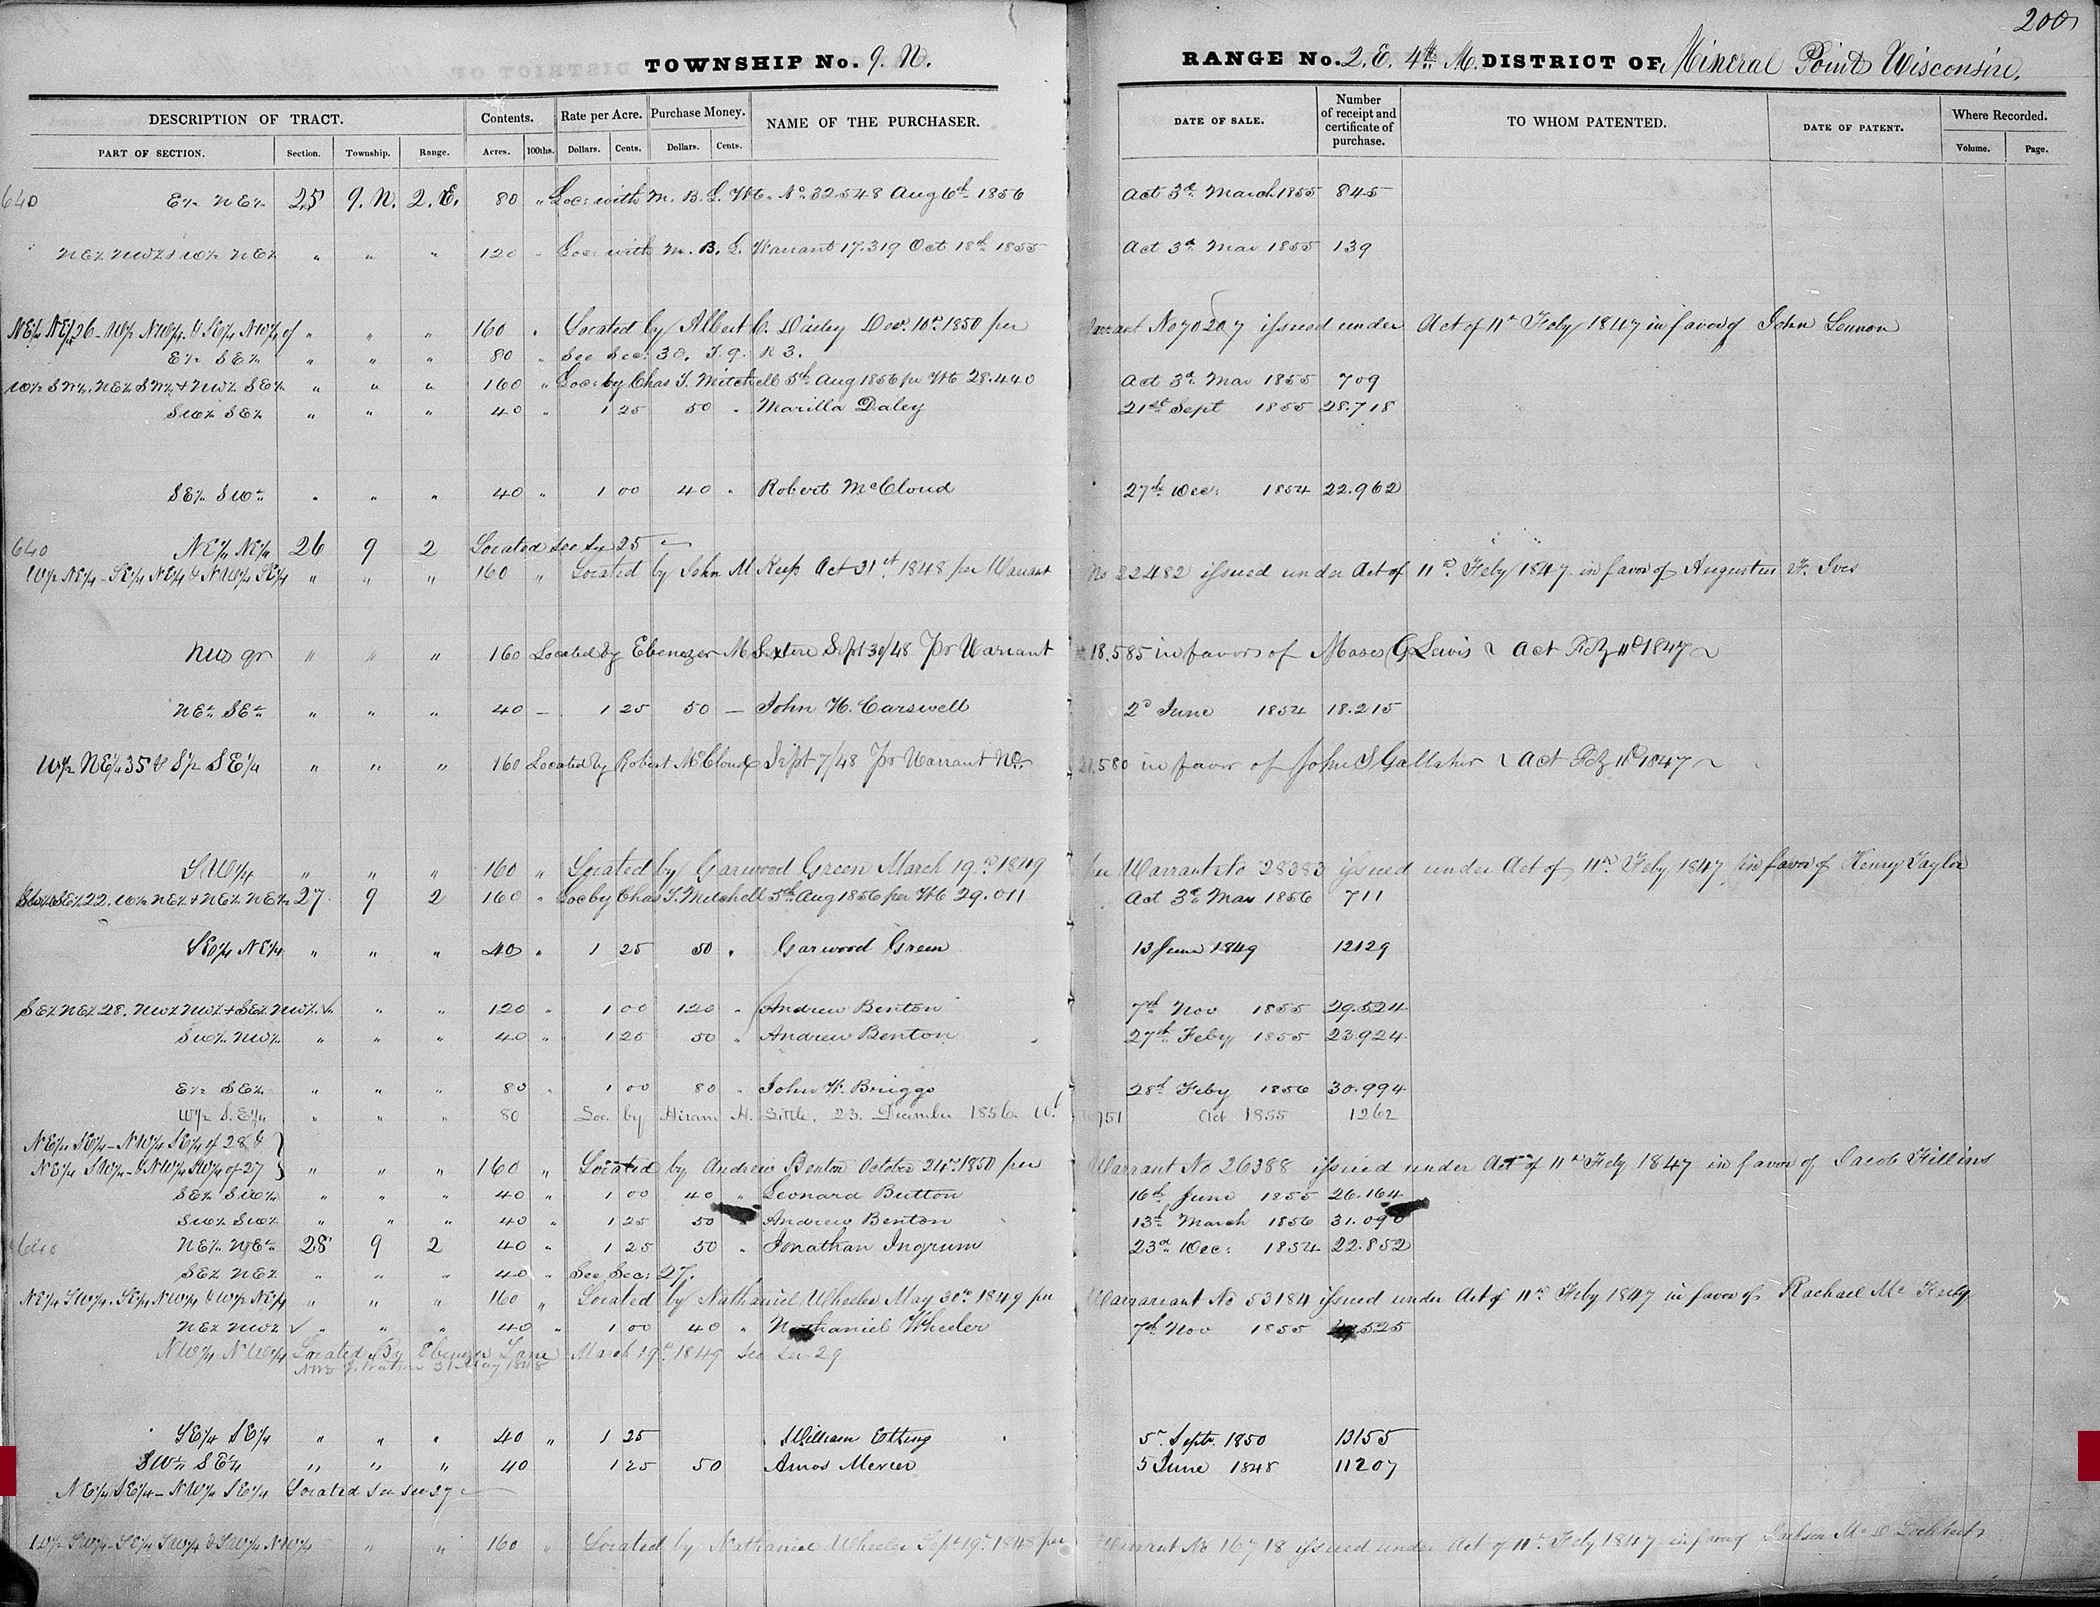 200
TOWNSHIP No. 9. N. RANGE No. 2. E. 4th M. DISTRICT OF Mineral Point Wisconsin.
DESCRIPTION OF TRACT. Contents. Rate per Acre. Purchase Money. NAME OF THE PURCHASER. DATE OF SALE. Number of receipt and certificate of purchase. TO WHOM PATENTED. DATE OF PATENT. Where Recorded.
PART OF SECTION. Section. Township. Range. Acres. 100ths. Dollars. Cents. Dollars. Cents. Volume. Page.
640 E½ NE¼ 25 9. N. 2. E. 80 " Loc: with M. B. L. Wt. No. 32.548 Aug 6th 1856 Act 3d March 1855 845
NE¼ NW¼ & W½ NE¼ " " " 120 " Loc: with M. B. L. Warrant 17.319 Oct 18th 1855 Act 3d Mar 1855 139
NE¼ NE¼ 26 - W½ NW¼ & SE¼ NW¼ of " " " 160 " Located by Albert C. Dailey Dec. 10th 1850 per Warrant No 70207 issued under Act of 11th Feby 1847 in favor of John Lennon
E½ SE¼ " " " 80 " See Sec: 30, T. 9. R 3.
W½ SW¼, NE¼ SW¼ & NW¼ SE¼ " " " 160 " Loc: by Chas T. Mitchell 5th Aug 1856 per Wt 28.440 Act 3d Mar 1855 709
SW¼ SE¼ " " " 40 " 1 25 50 " Marilla Daley 21st Sept 1855 28.718
SE¼ SW¼ " " " 40 " 1 00 40 " Robert McCloud 27th Dec: 1854 22.962
640 NE¼ NE¼ 26 9 2 Located see Sec 25
W½ NE¼ - SE¼ NE¼ & NW¼ SE¼ " " " 160 " Located by John M Keep Oct 31st 1848 per Warrant No 22482 issued under Act of 11th Feby 1847 in favor of Augustus F. Ives
NW qr " " " 160 Located by Ebenezer M Sextere Sept 30/48 Pr Warrant 18.585 in favor of Moses G Lewis Act Feb 11th 1847
NE¼ SE¼ " " " 40 — 1 25 50 — John H. Carswell 2d June 1854 18.215
W½ NE¼ 35 & S½ SE¼ " " " 160 Located by Robert McCloud Sept 7/48 Pr Warrant No 21.580 in favor of John S Gallaher Act Feb 11th 1847
SW¼ " " " 160 " Located by Garwood Green March 19th 1849 per Warrant No 28383 issued under Act of 11th Feby 1847 in favor of Henry Taylor
SE¼ 22. W½ NE¼ & NE¼ NE¼ 27 9 2 160 " Loc by Chas T. Mitchell 5th Aug 1856 per Wt 29.011 Act 3d Mar 1856 711
SE¼ NE¼ " " " 40 " 1 25 50 " Garwood Green 13 June 1849 12129
SE¼ NE¼ 28. NW¼ NW¼ & SE¼ NW¼ " " 120 " 1 00 120 " Andrew Benton 7th Nov 1855 29.524
SW¼ NW¼ " " " 40 " 1 25 50 " Andrew Benton 27th Feby 1855 23.924
E½ SE¼ " " " 80 " 1 00 80 " John W. Briggs 28th Feby 1856 30.994
W½ S.E¼ " " " 80 Loc. by Hiram H. Little. 23. December 1856. Wt 751 Act 1855 1262
NE¼ SE¼ - NW¼ SE¼ of 28 &
NE¼ SW¼ - & NW¼ SW¼ of 27 } " " " 160 " Located by Andrew Benton October 24th 1850 per Warrant No 26388 issued under Act of 11th Feby 1847 in favor of Jacob Fillins
SE¼ SW¼ " " " 40 " 1 00 40 " Leonard Button 16th June 1855 26.164
SW¼ SW¼ " " " 40 " 1 25 50 " Andrew Benton 13th March 1856 31.090
640 NE¼ NE¼ 28 9 2 40 " 1 25 50 " Jonathan Ingrum 23d Dec: 1854 22.852
SE¼ NE¼ " " " 40 " See Sec: 27.
NE¼ SW¼. SE¼ NW¼ & W½ NE¼ " " " 160 " Located by Nathaniel Wheeler May 30th 1849 per Warrant No 53184 issued under Act of 11th Feby 1847 in favor of Rachael Mc
NE¼ NW¼ " " " 40 " 1 00 40 " Nathaniel Wheeler 7th Nov 1855 29.525
NW¼ NW¼ Located By Ebenezer Lane March 19th 1849 See Sec 29
31 May 1848
SE¼ SE¼ " " " 40 " 1 25 William Etling 5th Sept. 1850 13155
SW¼ SE¼ " " " 40 1 25 50 Amos Mercer 5 June 1848 11207
NE¼ SE¼ - NW¼ SE¼ Located see Sec 27
W½ SW¼ - SE¼ SW¼ & SW¼ NW¼ " " 160 " Located by Nathaniel Wheeler Sept 19th 1848 per Warrant No 16718 issued under Act of 11th Feby 1847 in favor of Jackson Mc D Lockhart